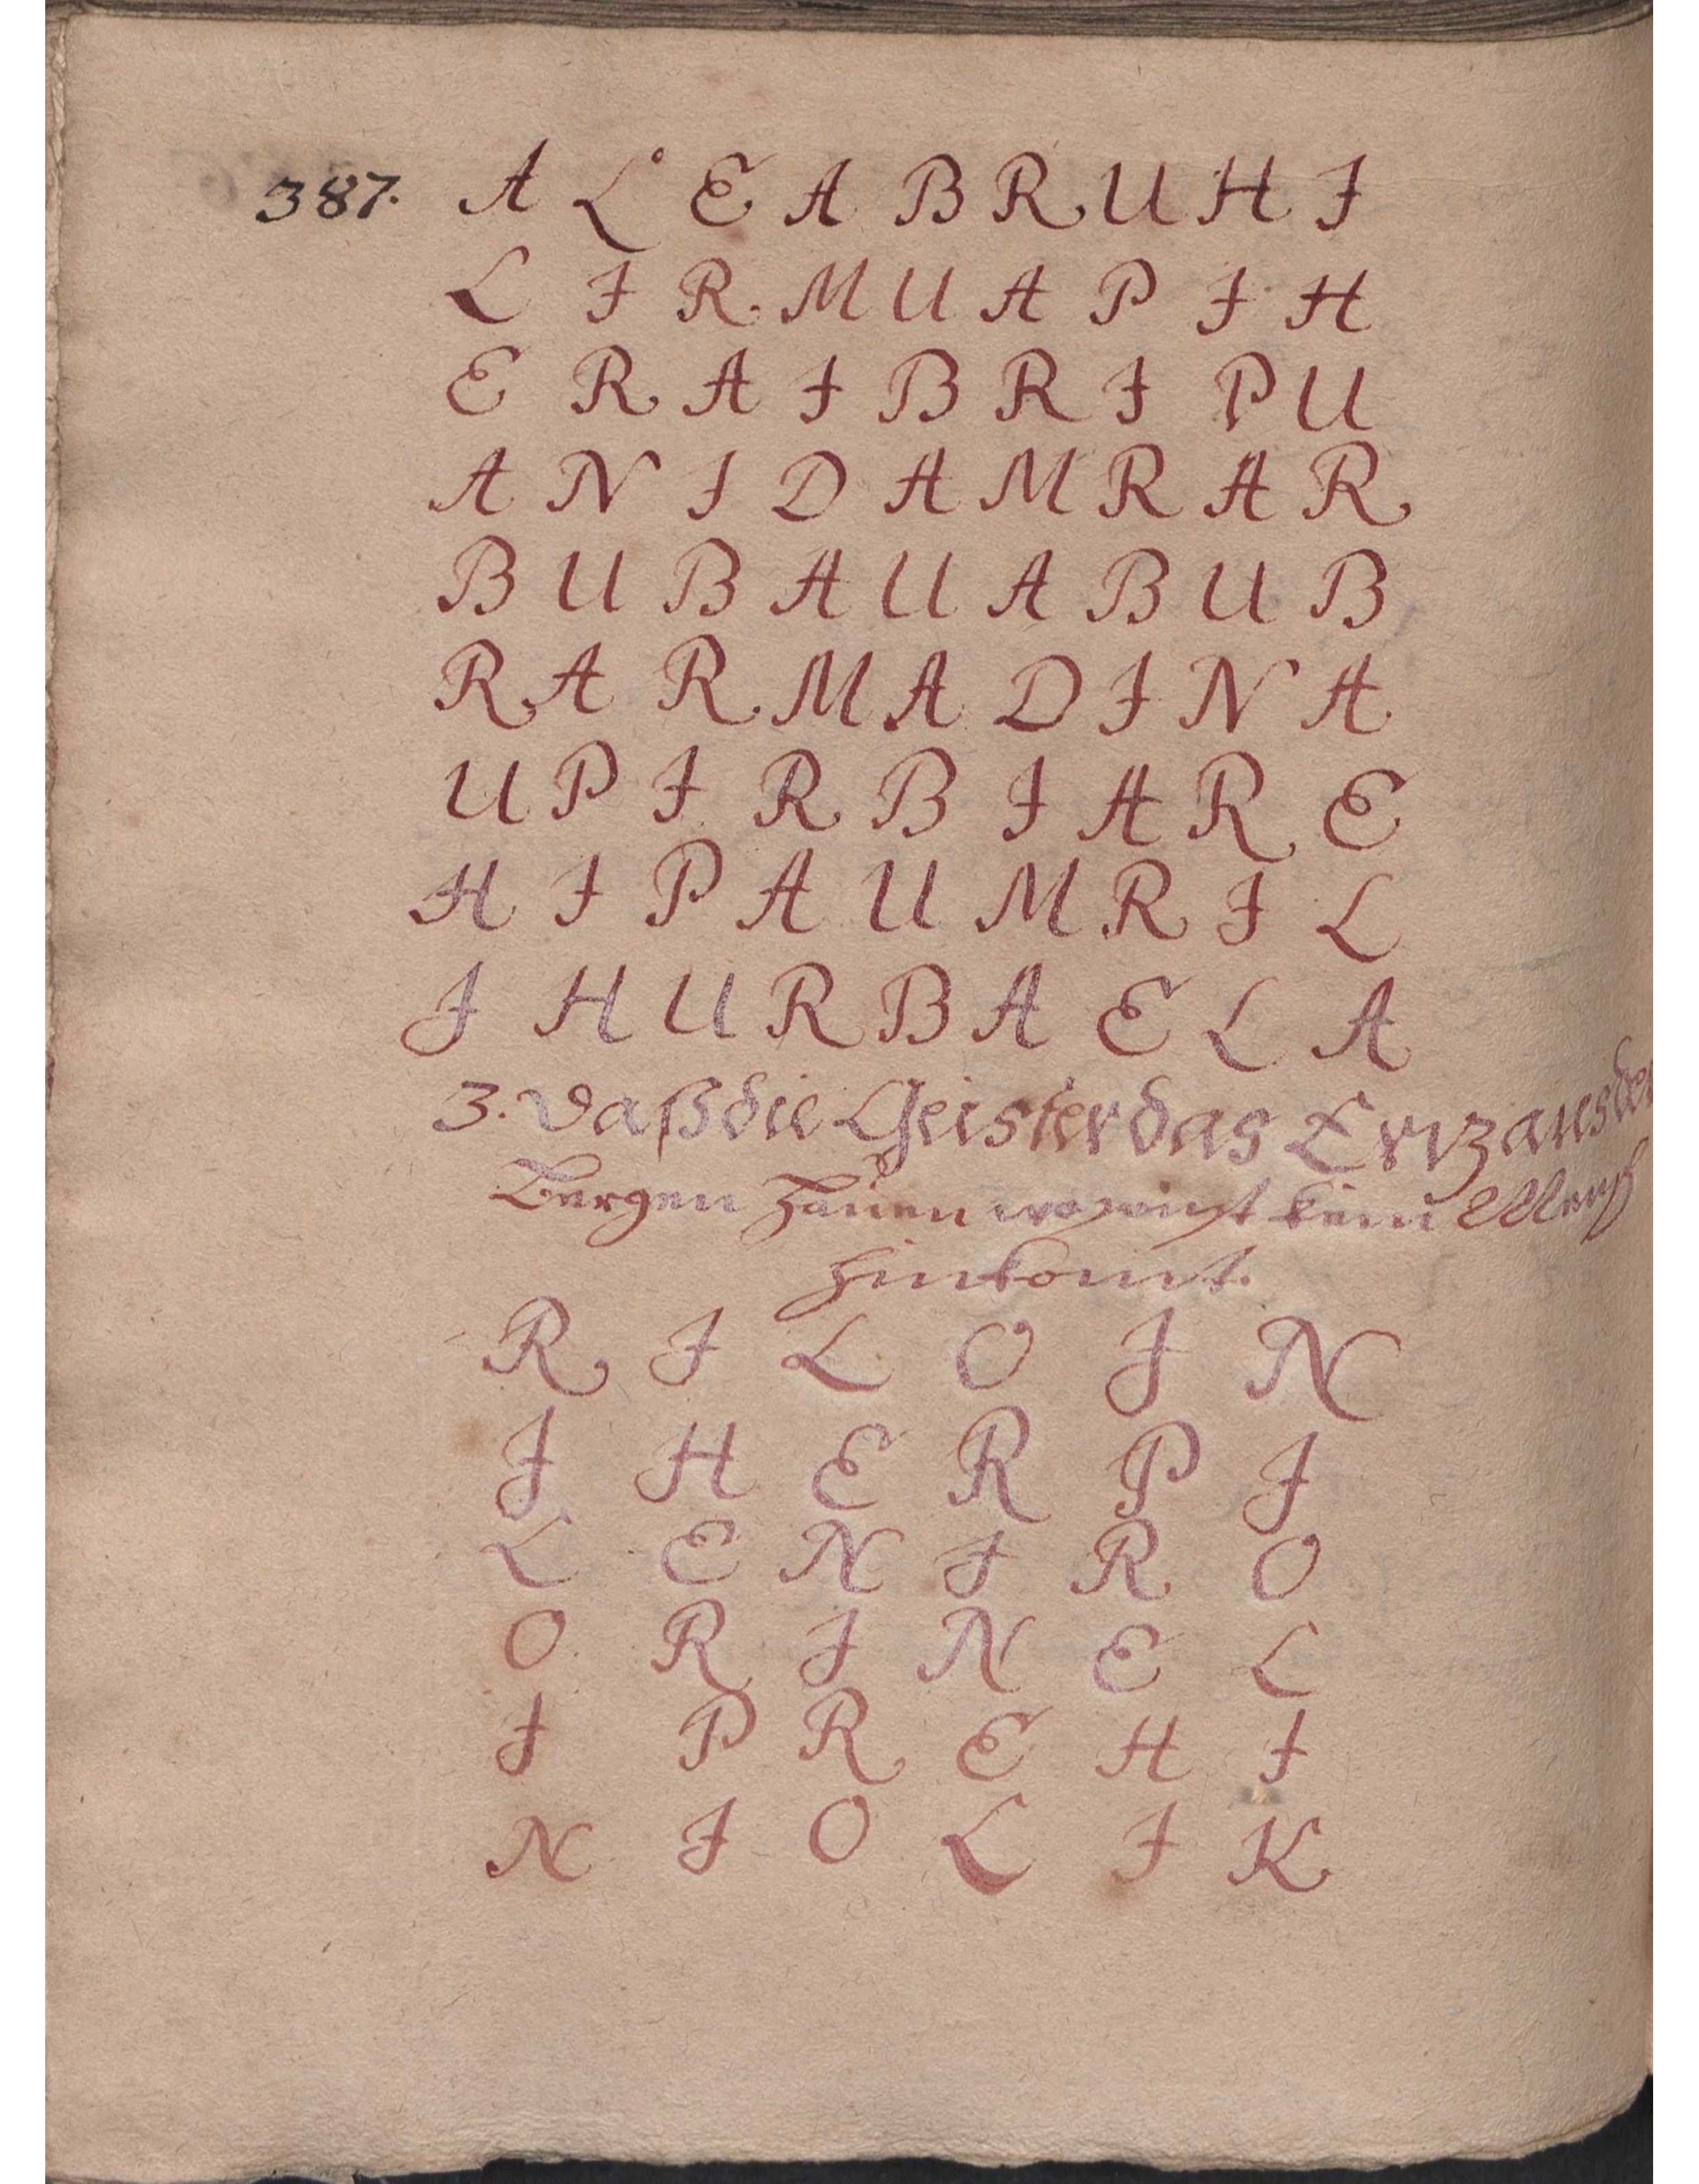 387. A L E A B R U H I
L I R M U A P I H
E R A I B R I P U
A N I D A M R A R
B U B A U A B U B
R A R M A D I N A
U P I R B I A R E
H I P A U M R I L
I H U R B A E L A
3. Daß die Geister das Ertz aus den
Bergen hauen wo sonst kein Mensch
hinkomt.
R I L O I N
I H E R P I
L E N I R O
O R I N E L
I P R E H I
N I O L I K